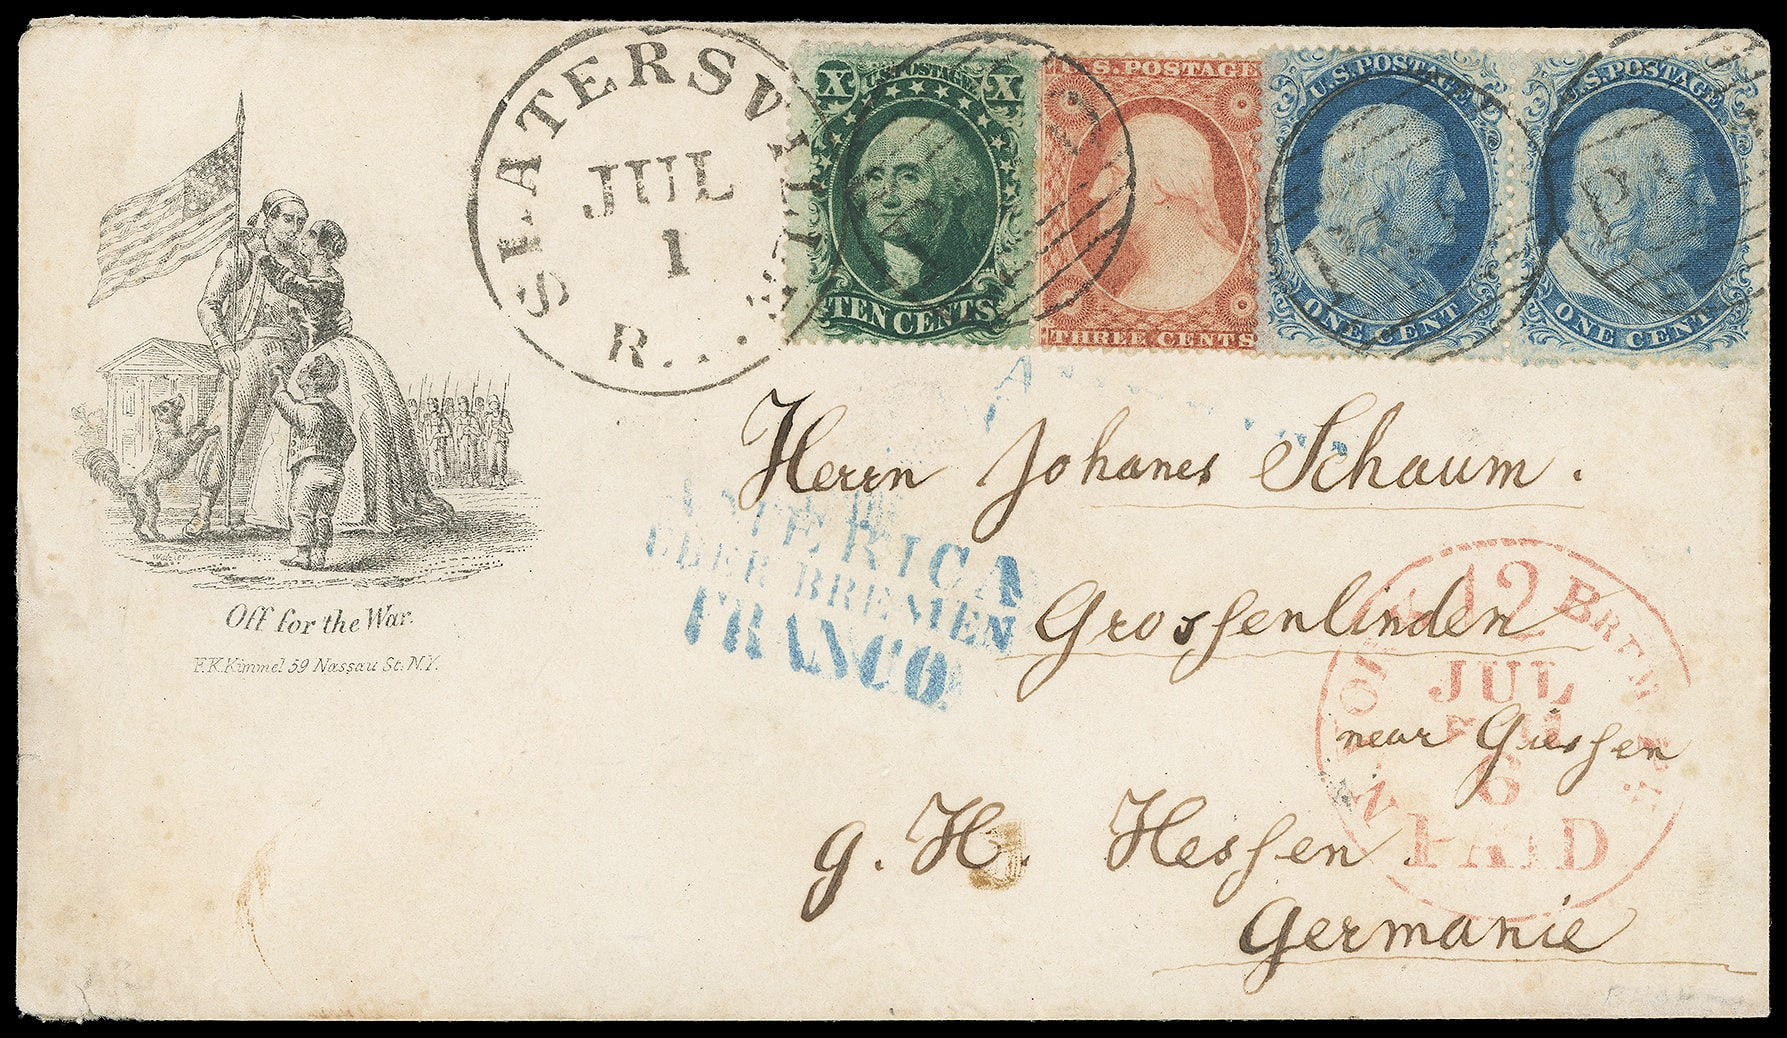 SLATERSVILLE
JUL
1
R...
X U.S. POSTAGE X
TEN CENTS
U.S. POSTAGE
THREE CENTS
U.S. POSTAGE
ONE CENT
U.S. POSTAGE
ONE CENT
PAID
PAID
Herrn Johanes Schaum.
AMERICA
UBER BREMEN
FRANCO
Grossenlinden
near Giessen
g. H. Hessen.
Germanie
12
BREM
JUL
6
PAID
Off for the War.
F.K. Kimmel 59 Nassau St. N.Y.